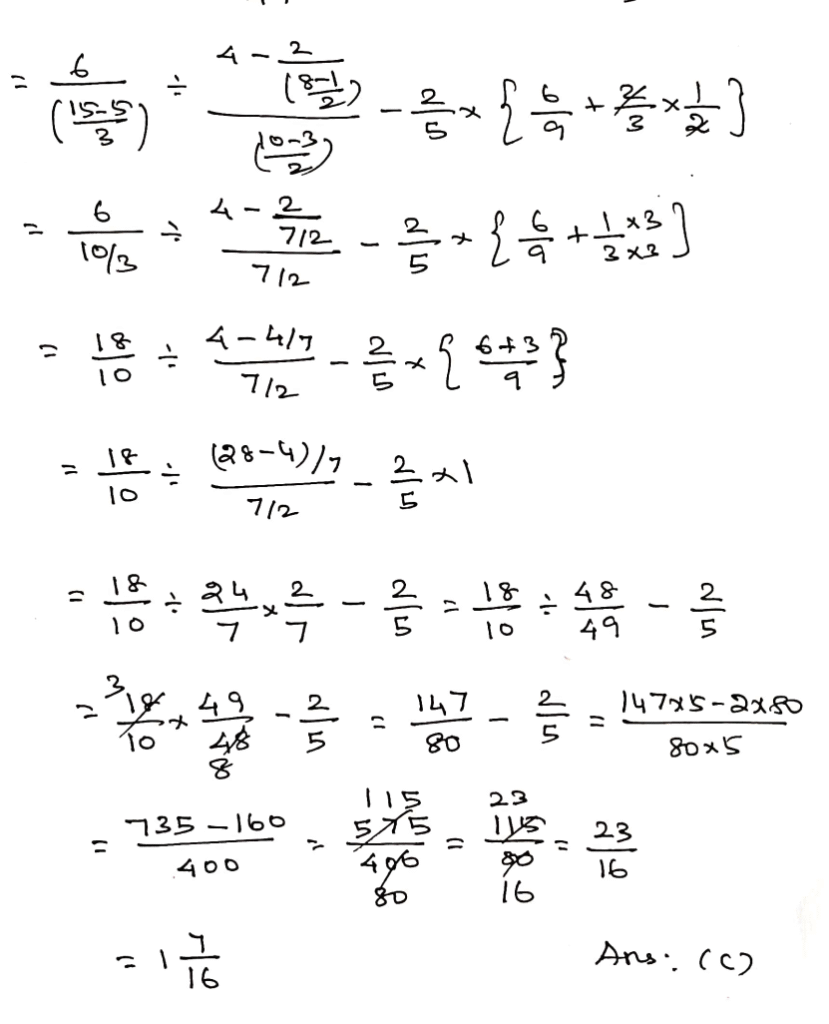 = 6/((15-5)/3) ÷ (4 - 2/((8-1)/2))/((10-3)/2) - 2/5 × { 6/9 + 2/3 × 1/2 }
= 6/(10/3) ÷ (4 - 2/(7/2))/(7/2) - 2/5 × { 6/9 + (1×3)/(3×3) }
= 18/10 ÷ (4 - 4/7)/(7/2) - 2/5 × { (6+3)/9 }
= 18/10 ÷ ((28-4)/7)/(7/2) - 2/5 × 1
= 18/10 ÷ 24/7 × 2/7 - 2/5 = 18/10 ÷ 48/49 - 2/5
= 3 18/10 × 49/48 8 - 2/5 = 147/80 - 2/5 = (147×5-2×80)/(80×5)
= (735-160)/400 = 115 575/400 80 = 23 115/80 16 = 23/16
= 1 7/16 Ans: (C)